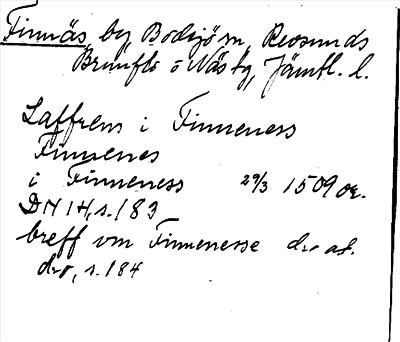 Finnäs by Bodsjö sn, Revsunds
Brunflo o Näs tg, Jämtl. l.
Laffrens i Finneness
Finnenes
i Finneness 29/3 1509 or.
DN 14, s. 183
breff vm Finnenesse d:o af.
d:o, s. 184